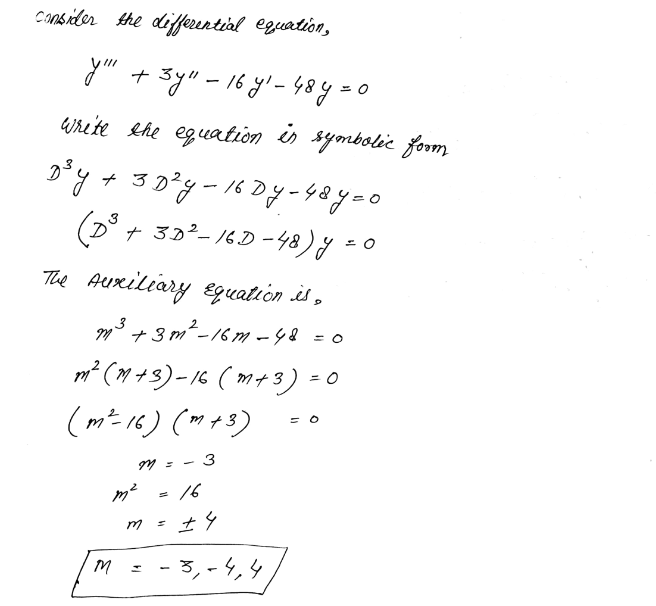 Consider the differential equation,
y''' + 3y'' - 16y' - 48y = 0
Write the equation in symbolic form
D³y + 3D²y - 16Dy - 48y = 0
(D³ + 3D² - 16D - 48) y = 0
The Auxiliary equation is,
m³ + 3m² - 16m - 48 = 0
m² (m+3) - 16 (m+3) = 0
(m² - 16) (m+3) = 0
m = - 3
m² = 16
m = ± 4
m = - 3, - 4, 4